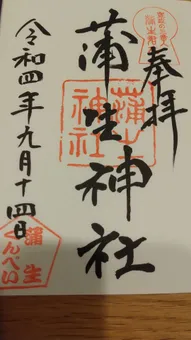 奉拝
蒲生神社
令和四年九月十四日
蒲生
神社
蒲生
くんぺい